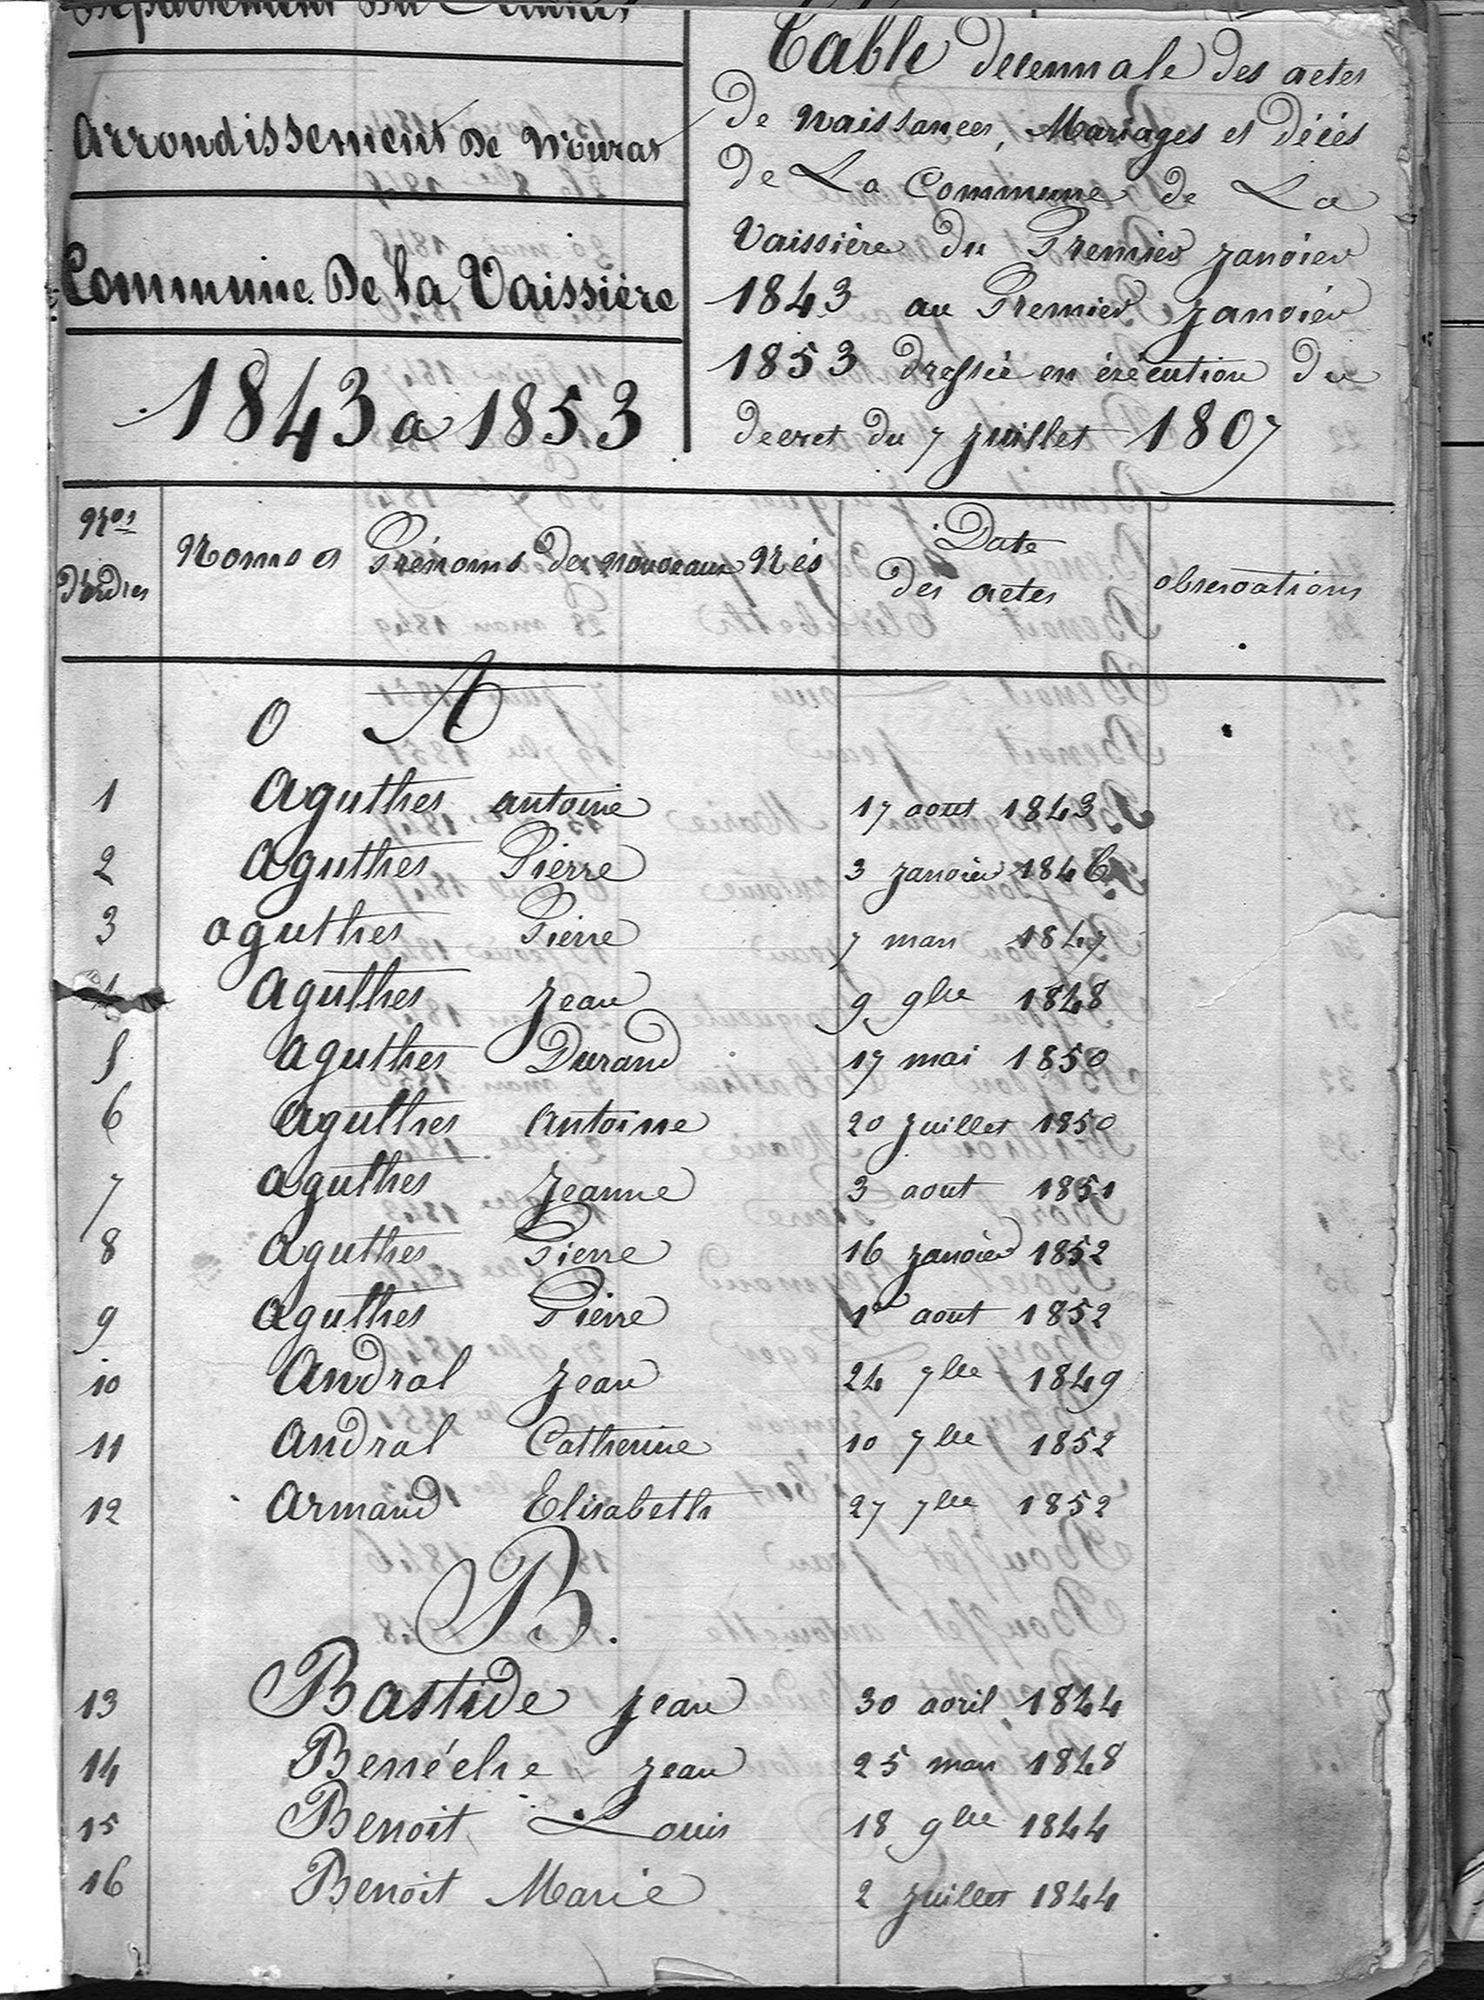 Département Du Cantal
Arrondissement De Murat
Commune De la Vaissière
1843 a 1853
Table decennale des actes
de naissances, Mariages et décés
de La Commune de La
Vaissière du Premier janvier
1843 au Premier janvier
1853 dressée en éxécution du
decret du 7 juillet 1807
Nros d'ordres
Noms et Prénoms des nouveaux Nés
Date des actes
observations
A
1 Aguthes antoine 17 aout 1843
2 Aguthes Pierre 3 janvier 1846
3 aguthes Pierre 7 mars 1847
4 Aguthes Jean 9 9bre 1848
5 Aguthes Durand 17 mai 1850
6 Aguthes Antoine 20 juillet 1850
7 aguthes Jeanne 3 aout 1851
8 Aguthes Pierre 16 janvier 1852
9 aguthes Pierre 1er aout 1852
10 Andral Jean 24 7bre 1849
11 Andral Catherine 10 7bre 1852
12 Armand Elisabeth 27 7bre 1852
B.
13 Bastide Jean 30 avril 1844
14 Benéche Jean 25 mars 1848
15 Benoit Louis 18 9bre 1844
16 Benoit Marie 2 juillet 1844